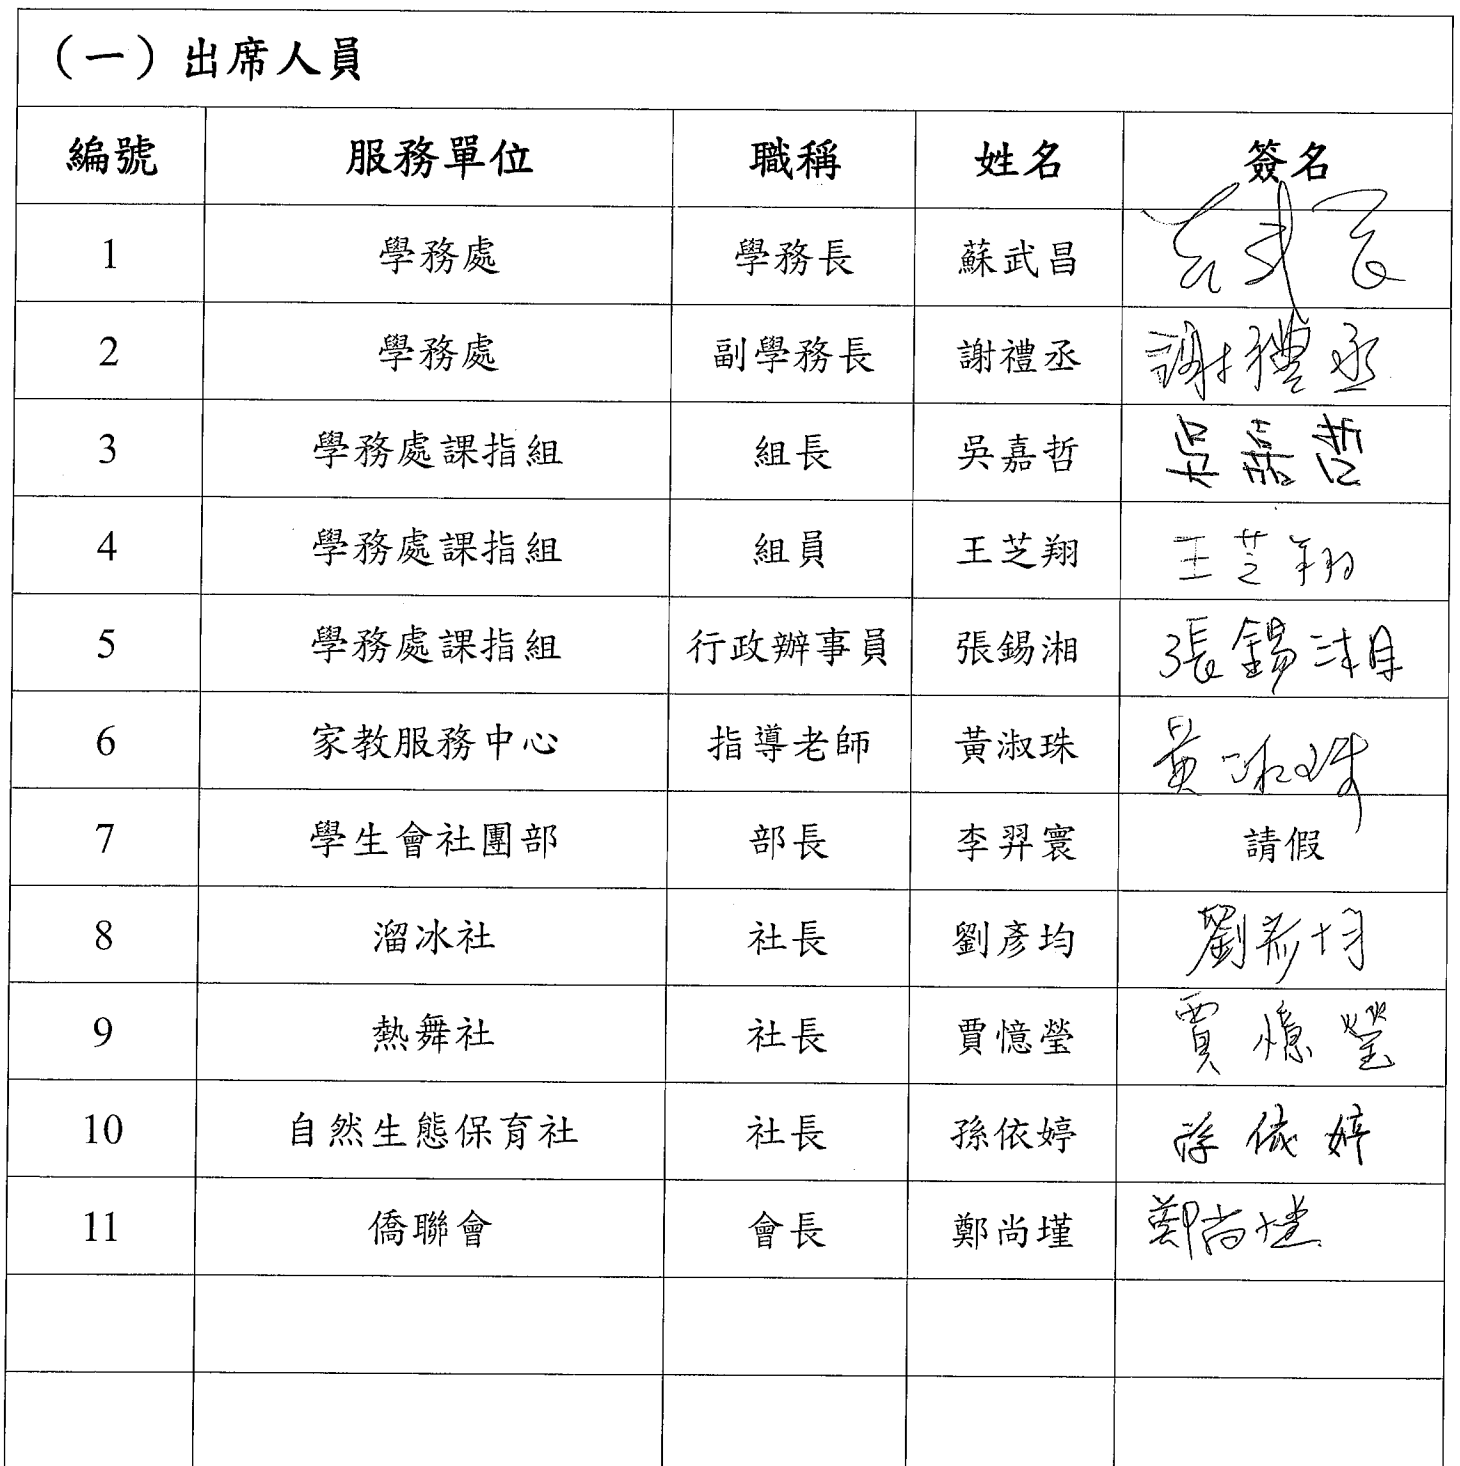 （一）出席人員
編號 服務單位 職稱 姓名 簽名
1 學務處 學務長 蘇武昌
2 學務處 副學務長 謝禮丞 謝禮丞
3 學務處課指組 組長 吳嘉哲 吳嘉哲
4 學務處課指組 組員 王芝翔 王芝翔
5 學務處課指組 行政辦事員 張錫湘 張錫湘
6 家教服務中心 指導老師 黃淑珠 黃淑珠
7 學生會社團部 部長 李羿寰 請假
8 溜冰社 社長 劉彥均 劉彥均
9 熱舞社 社長 賈憶瑩 賈憶瑩
10 自然生態保育社 社長 孫依婷 孫依婷
11 僑聯會 會長 鄭尚墐 鄭尚墐